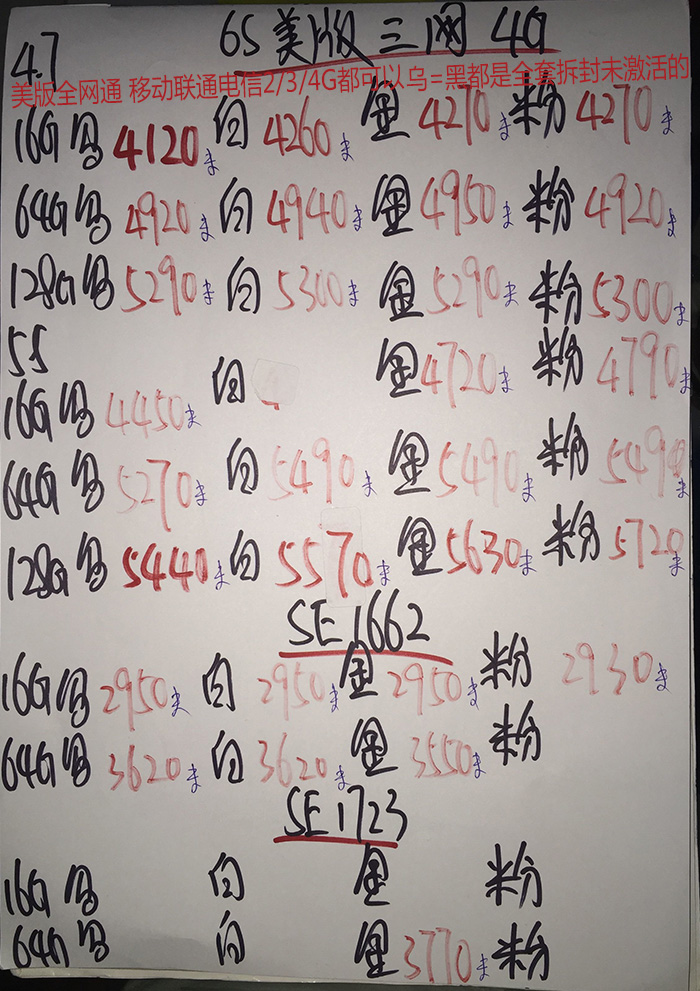 6S美版三网4G
4.7
美版全网通 移动联通电信2/3/4G都可以乌=黑都是全套拆封未激活的
16G乌4120未 白4260未 金4270未 粉4270未
64G乌4920未 白4940未 金4950未 粉4920未
128G乌5290未 白5300未 金5290未 粉5300未
5.5
16G乌4450未 白 金4720未 粉4790未
64G乌5270未 白5490未 金5490未 粉5490未
128G乌5440未 白5570未 金5630未 粉5720未
SE1662
16G乌2950未 白2950未 金2950未 粉2930未
64G乌3620未 白3620未 金3550未 粉
SE1723
16G乌 白 金 粉
64G乌 白 金3770未 粉